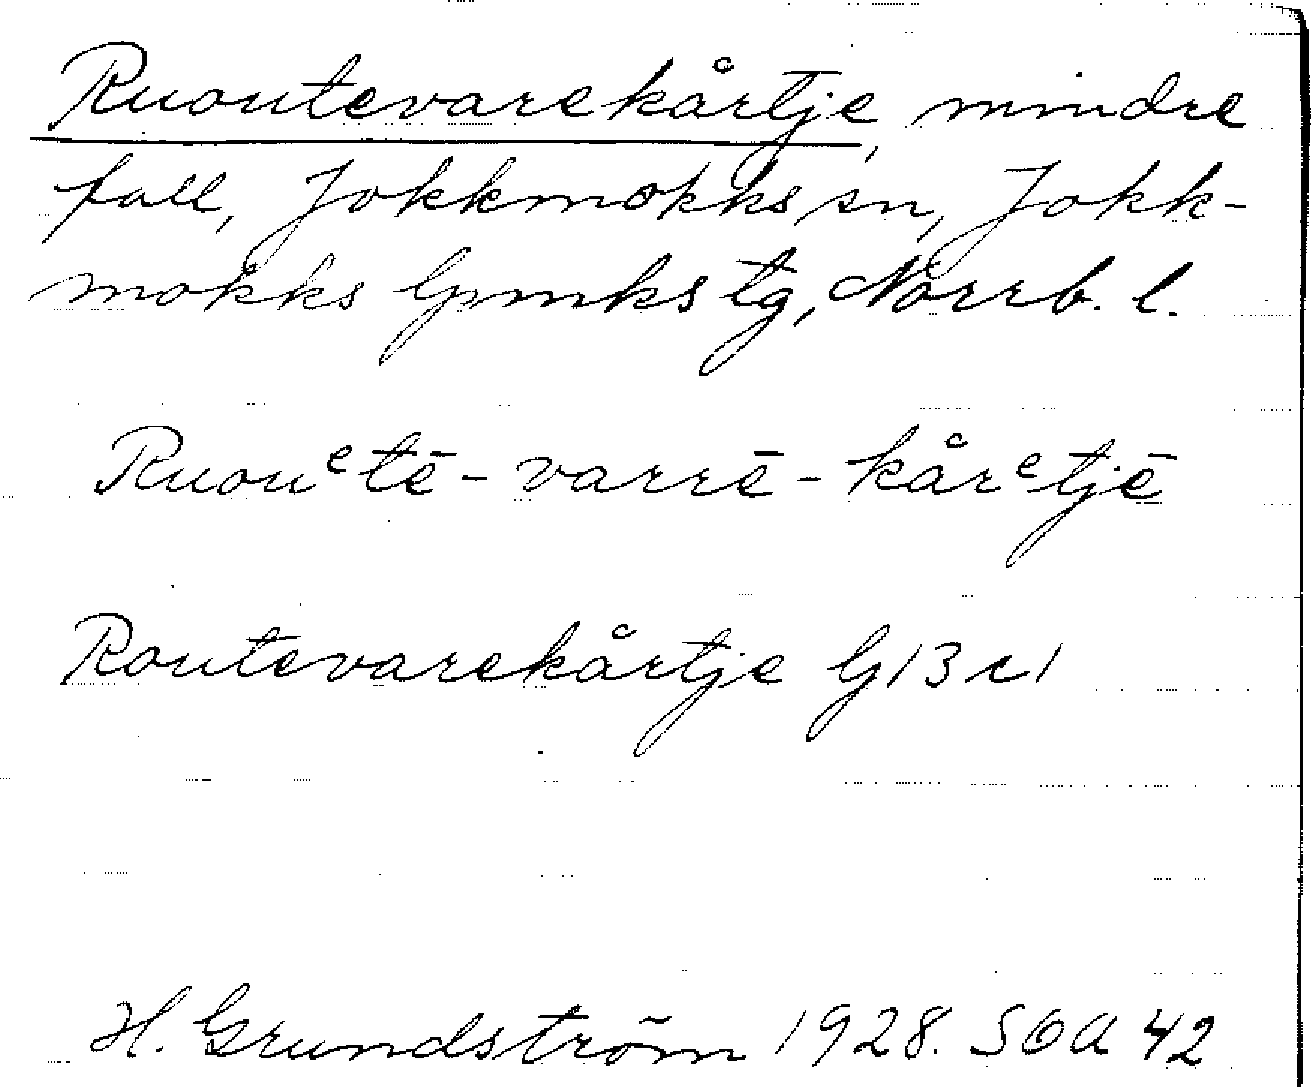 Ruoutevarekårtje, mindre
fall, Jokkmokks sn, Jokk-
mokks lpmks tg, Norrb. l.
Ruouᵉtē-varrē-kårᵉtjē
Routevarekårtje G13c1
H. Grundström 1928. SOA 42